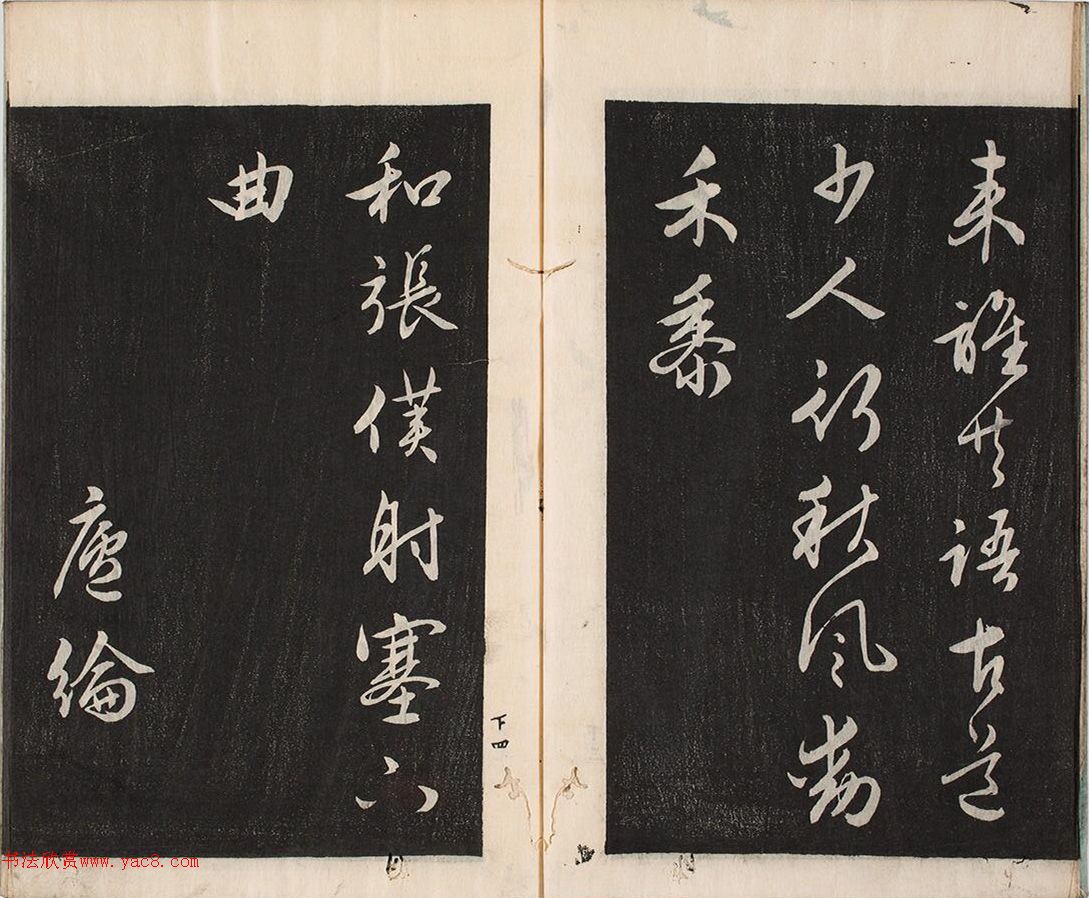 来誰共語古道
少人行秋風動
禾黍
和張僕射塞下
曲
盧綸
下四
书法欣赏www.yac8.com